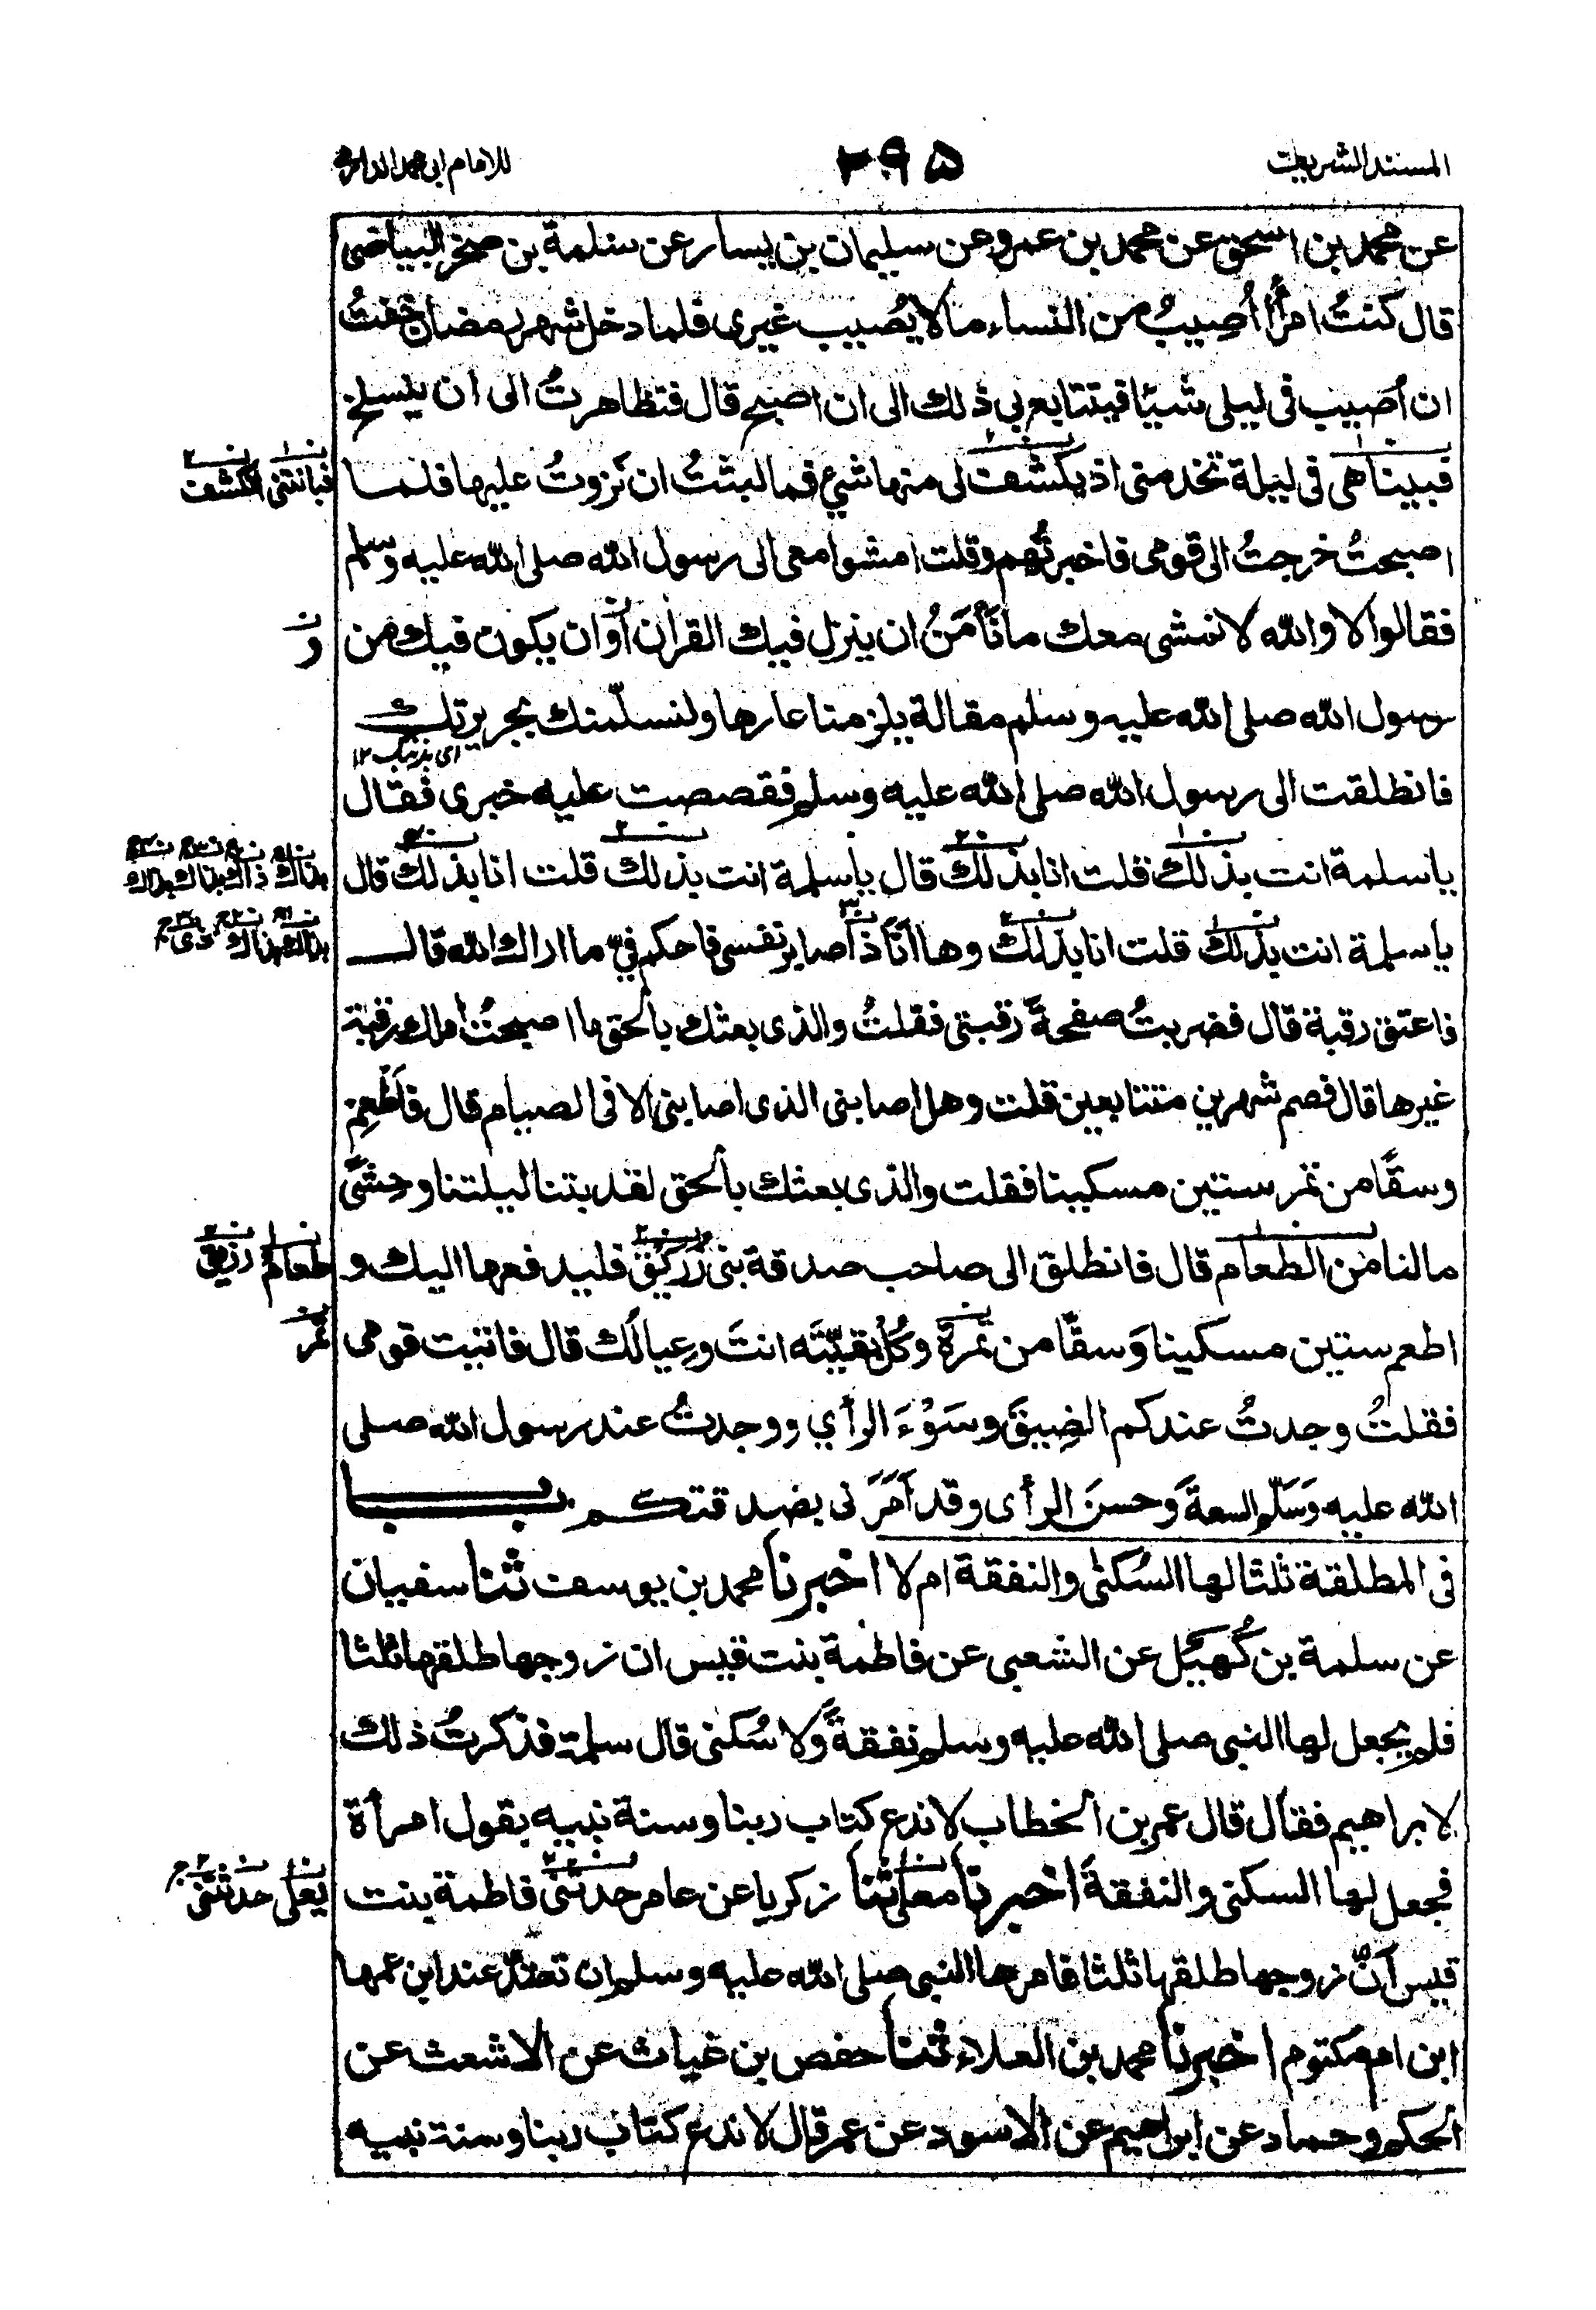 المسند الشريف
٢٩٥
للامام ابى محمد الدارمى
عن محمد بن اسحق عن محمد بن عمرو عن سليمان بن يسار عن سلمة بن صخر البياضى
قال كنتُ امرأً أُصِيبُ من النساء ما لا يُصيب غيرى فلما دخل شهر رمضان خفتُ
ان اُصيب فى ليلى شيئا فيتتايع بى ذلك الى ان اصبح قال فتظاهرتُ الى ان ينسلخ
فبينا هى فى ليلة تخدمنى اذ يكشف لى منها شئ فما لبثتُ ان نَزوتُ عليها فلما
اصبحتُ خرجتُ الى قومى فاخبرتُهم وقلت امشوا معى الى رسول الله صلى الله عليه وسلم
فقالوا لا والله لا نمشى معك ما نَأْمَنُ ان ينزل فيك القران اَوْ ان يكون فيك من
و
رسول الله صلى الله عليه وسلم مقالة يلزمنا عارها ولنسلّمنك بجريرتك
اى بذنبك ١٢
فانطلقت الى رسول الله صلى الله عليه وسلم فقصصت عليه خبرى فقال
يا سلمة انت بذلك قلت انا بذلك قال يا سلمة انت بذلك قلت انا بذلك قال
يا سلمة انت بذلك قلت انا بذلك وها اَنَا ذا صابر نفسى فاحكم فىّ ما اراك الله قال
فاعتق رقبة قال فضربتُ صفحةَ رقبتى فقلتُ والذى بعثك بالحق ما اصبحتُ املك رقبة
غيرها قال فصم شهرين متتابعين قلت وهل اصابنى الذى اصابنى الا فى الصيام قال فاَطْعِم
وسقًا من تمر ستين مسكينا فقلت والذى بعثك بالحق لقد بتنا ليلتنا وحشى
ما لنا من الطعام قال فانطلق الى صاحب صدقة بنى زُرَيْق فليدفعها اليك و
طعام رزيق
اطعم ستين مسكينا وَسقًا من تمرة وكُلْ بقيّتَه انتَ وعِيالُك قال فاتيت قومى
تمر
فقلتُ وجدتُ عندكم الضِيقَ وسَوْءَ الرأي ووجدتُ عند رسول الله صلى
الله عليه وَسَلَّم السعةَ وحسنَ الرأى وقد اَمَرَ لى بصدقتكم باب
فى المطلقة ثلثا لها السُكنٰى والنفقة ام لا اخبرنا محمد بن يوسف ثنا سفيان
عن سلمة بن كُهَيْل عن الشعبى عن فاطمة بنت قيس ان زوجها طلقها ثلثا
فلم يجعل لها النبى صلى الله عليه وسلم نفقةً ولا سُكنى قال سلمة فذكرتُ ذلك
لابراهيم فقال قال عمر بن الخطاب لا ندع كتاب ربنا وسنة نبيه بقول امرأة
فجعل لها السكنى والنفقةَ اخبرنا معلى ثنا زكريا عن عامر حدثتنى فاطمة بنت
يعلى حدثتنى
قيس اَنّ زوجها طلقها ثلثا فامرها النبى صلى الله عليه وسلم ان تعتدّ عند ابن عمها
ابن ام مكتوم اخبرنا محمد بن العلاء ثنا حفص بن غياث عن الاشعث عن
الحكم وحماد عن ابراهيم عن الاسود عن عمر قال لا ندع كتاب ربنا وسنة نبيه